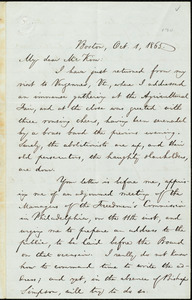 Boston, Oct. 1, 1865.
My dear McKim:
I have just returned from my
visit to Vergennes, Vt., where I addressed
an immense gathering at the Agricultural
Fair, and at the close was greeted with
three rousing cheers, having been serenaded
by a brass band the previous evening.
Surely, the abolitionists are up, and their
old persecutors, the haughty slaveholders, are
down!
Your letter is before me, ap-
prising me of an adjourned meeting of the
Managers of the Freedmen's Commission
in Philadelphia, on the 11th inst., and
urging me to prepare an address to the
public, to be laid before the Board
on that occasion. I really do not know
how to command time to write the ad-
dress; and yet, in the absence of Bishop
Simpson, will try to do so.